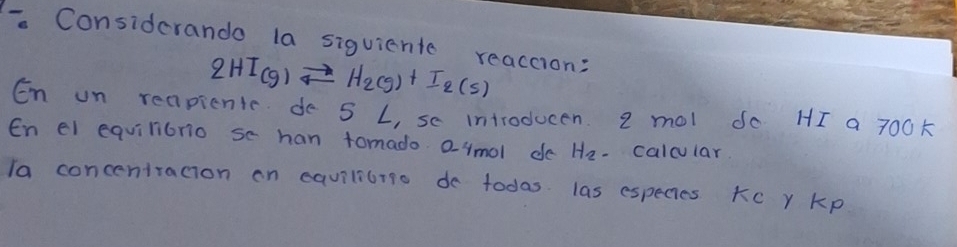 1.- Considerando la siguiente reaccion:
2HI(g) ⇄ H2(g) + I2(s)
En un recipiente de 5 L, se introducen 2 mol de HI a 700K
En el equilibrio se han tomado 0.4mol de H2. calcular
la concentracion en equilibrio de todas las especies Kc y Kp